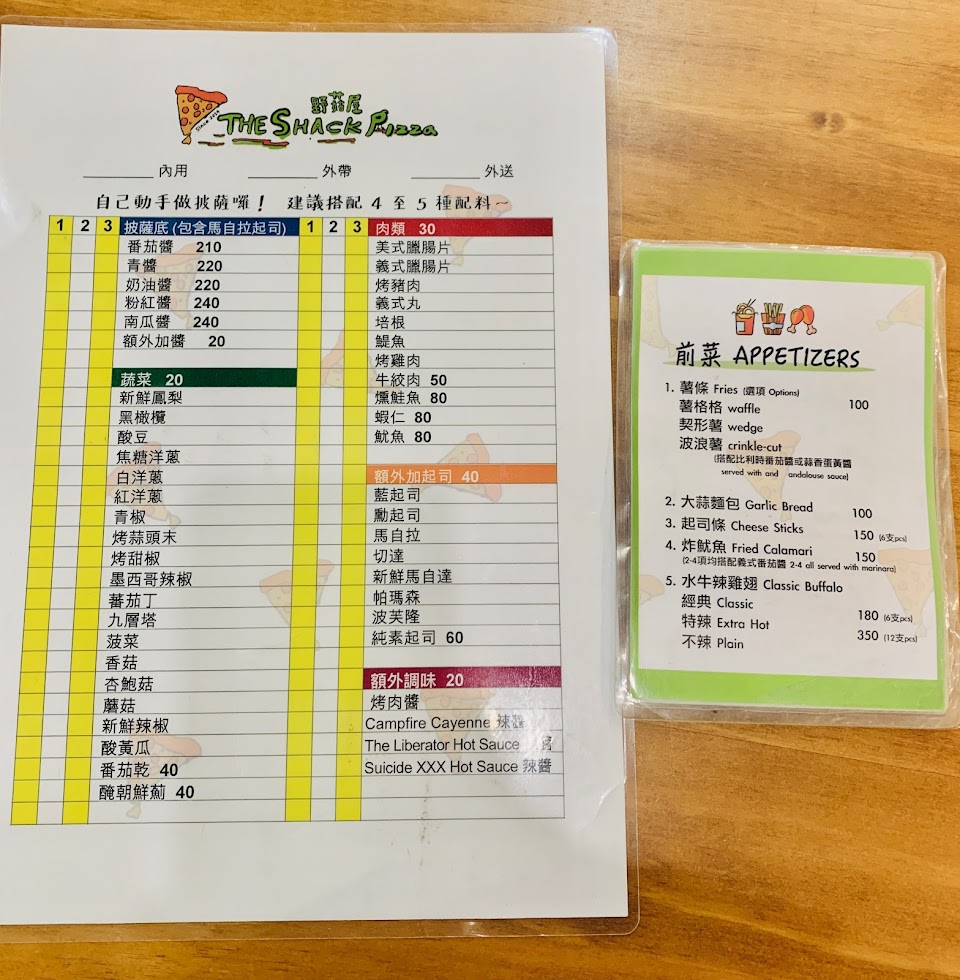 SINCE 2014
野菇屋
THE SHACK Pizza
內用 外帶 外送
自己動手做披薩囉! 建議搭配 4 至 5 種配料~
1 2 3 披薩底 (包含馬自拉起司)
番茄醬 210
青醬 220
奶油醬 220
粉紅醬 240
南瓜醬 240
額外加醬 20
蔬菜 20
新鮮鳳梨
黑橄欖
酸豆
焦糖洋蔥
白洋蔥
紅洋蔥
青椒
烤蒜頭末
烤甜椒
墨西哥辣椒
蕃茄丁
九層塔
菠菜
香菇
杏鮑菇
蘑菇
新鮮辣椒
酸黃瓜
番茄乾 40
醃朝鮮薊 40
1 2 3 肉類 30
美式臘腸片
義式臘腸片
烤豬肉
義式丸
培根
鯷魚
烤雞肉
牛絞肉 50
燻鮭魚 80
蝦仁 80
魷魚 80
額外加起司 40
藍起司
勳起司
馬自拉
切達
新鮮馬自達
帕瑪森
波芙隆
純素起司 60
額外調味 20
烤肉醬
Campfire Cayenne 辣醬
The Liberator Hot Sauce
Suicide XXX Hot Sauce 辣醬
前菜 APPETIZERS
1. 薯條 Fries (選項 Options)
薯格格 waffle 100
契形薯 wedge
波浪薯 crinkle-cut
(搭配比利時番茄醬或蒜香蛋黃醬
served with and andalouse sauce)
2. 大蒜麵包 Garlic Bread 100
3. 起司條 Cheese Sticks 150 (6支pcs)
4. 炸魷魚 Fried Calamari 150
(2-4項均搭配義式番茄醬 2-4 all served with marinara)
5. 水牛辣雞翅 Classic Buffalo
經典 Classic 180 (6支pcs)
特辣 Extra Hot 350 (12支pcs)
不辣 Plain